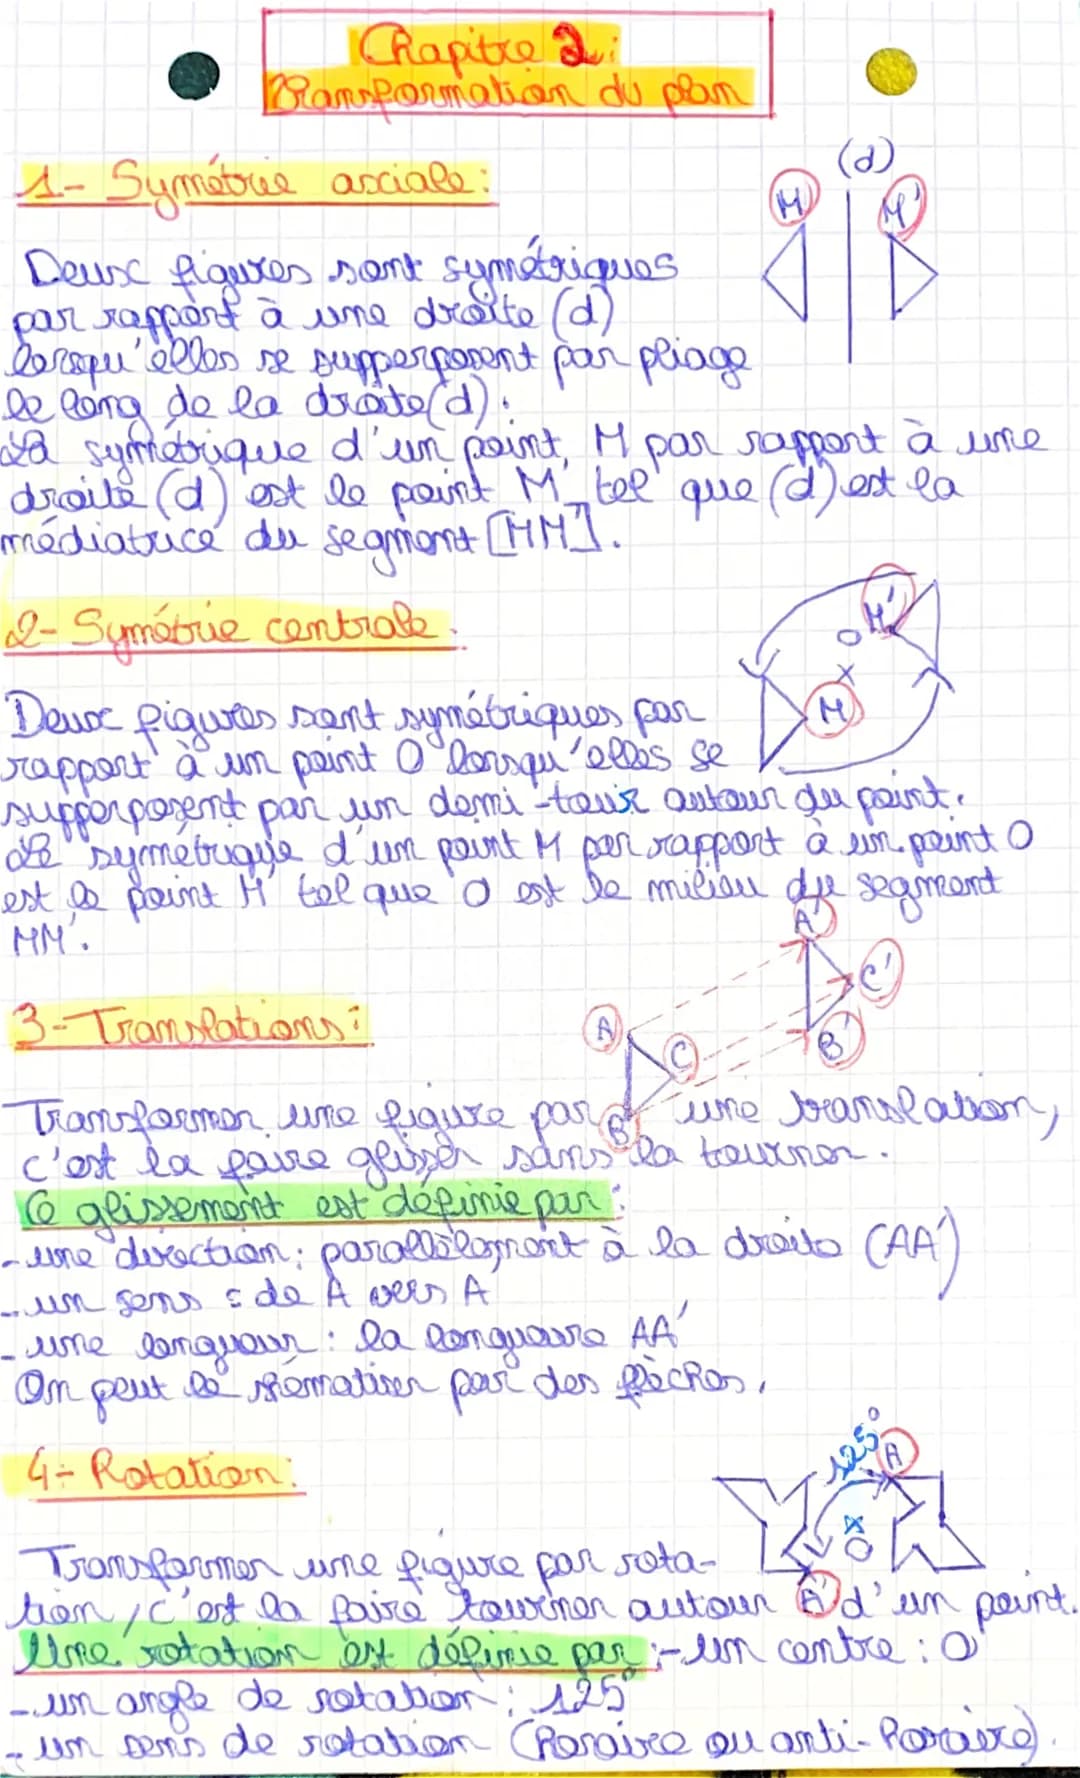 Chapitre 2:
Transformation du plan
1- Symétrie axciale:
(d)
M
M'
Deux figures sont symétriques
par rapport à une droite (d)
lorsqu'elles se supperposent par pliage
le long de la droite(d).
La symétrique d'un point, M par rapport à une
droite (d) est le point M, tel que (d) est la
médiatrice du segment [MM'].
2- Symétrie centrale.
M'
O
M
Deux figures sont symétriques par
rapport à un point O lorsqu'elles se
supperposent par un demi-tour autour du point.
Le symétrique d'un point M par rapport à un point O
est le point M' tel que O est le milieu du segment
MM'.
A'
C'
B'
3- Translations:
A
C
B
Transformer une figure par une translation,
c'est la faire glisser sans la tourner.
Ce glissement est définie par:
- une direction: parallèlement à la droite (AA')
- un sens: de A vers A'
- une longueur: la longueure AA'
On peut le shématiser par des flèches.
125°
A
4- Rotation:
O
Transformer une figure par rota-
tion, c'est la faire tourner autour d'un point.
A'
Une rotation est définie par:- un centre: O
- un angle de rotation: 125°
- un sens de rotation (horaire ou anti-horaire).